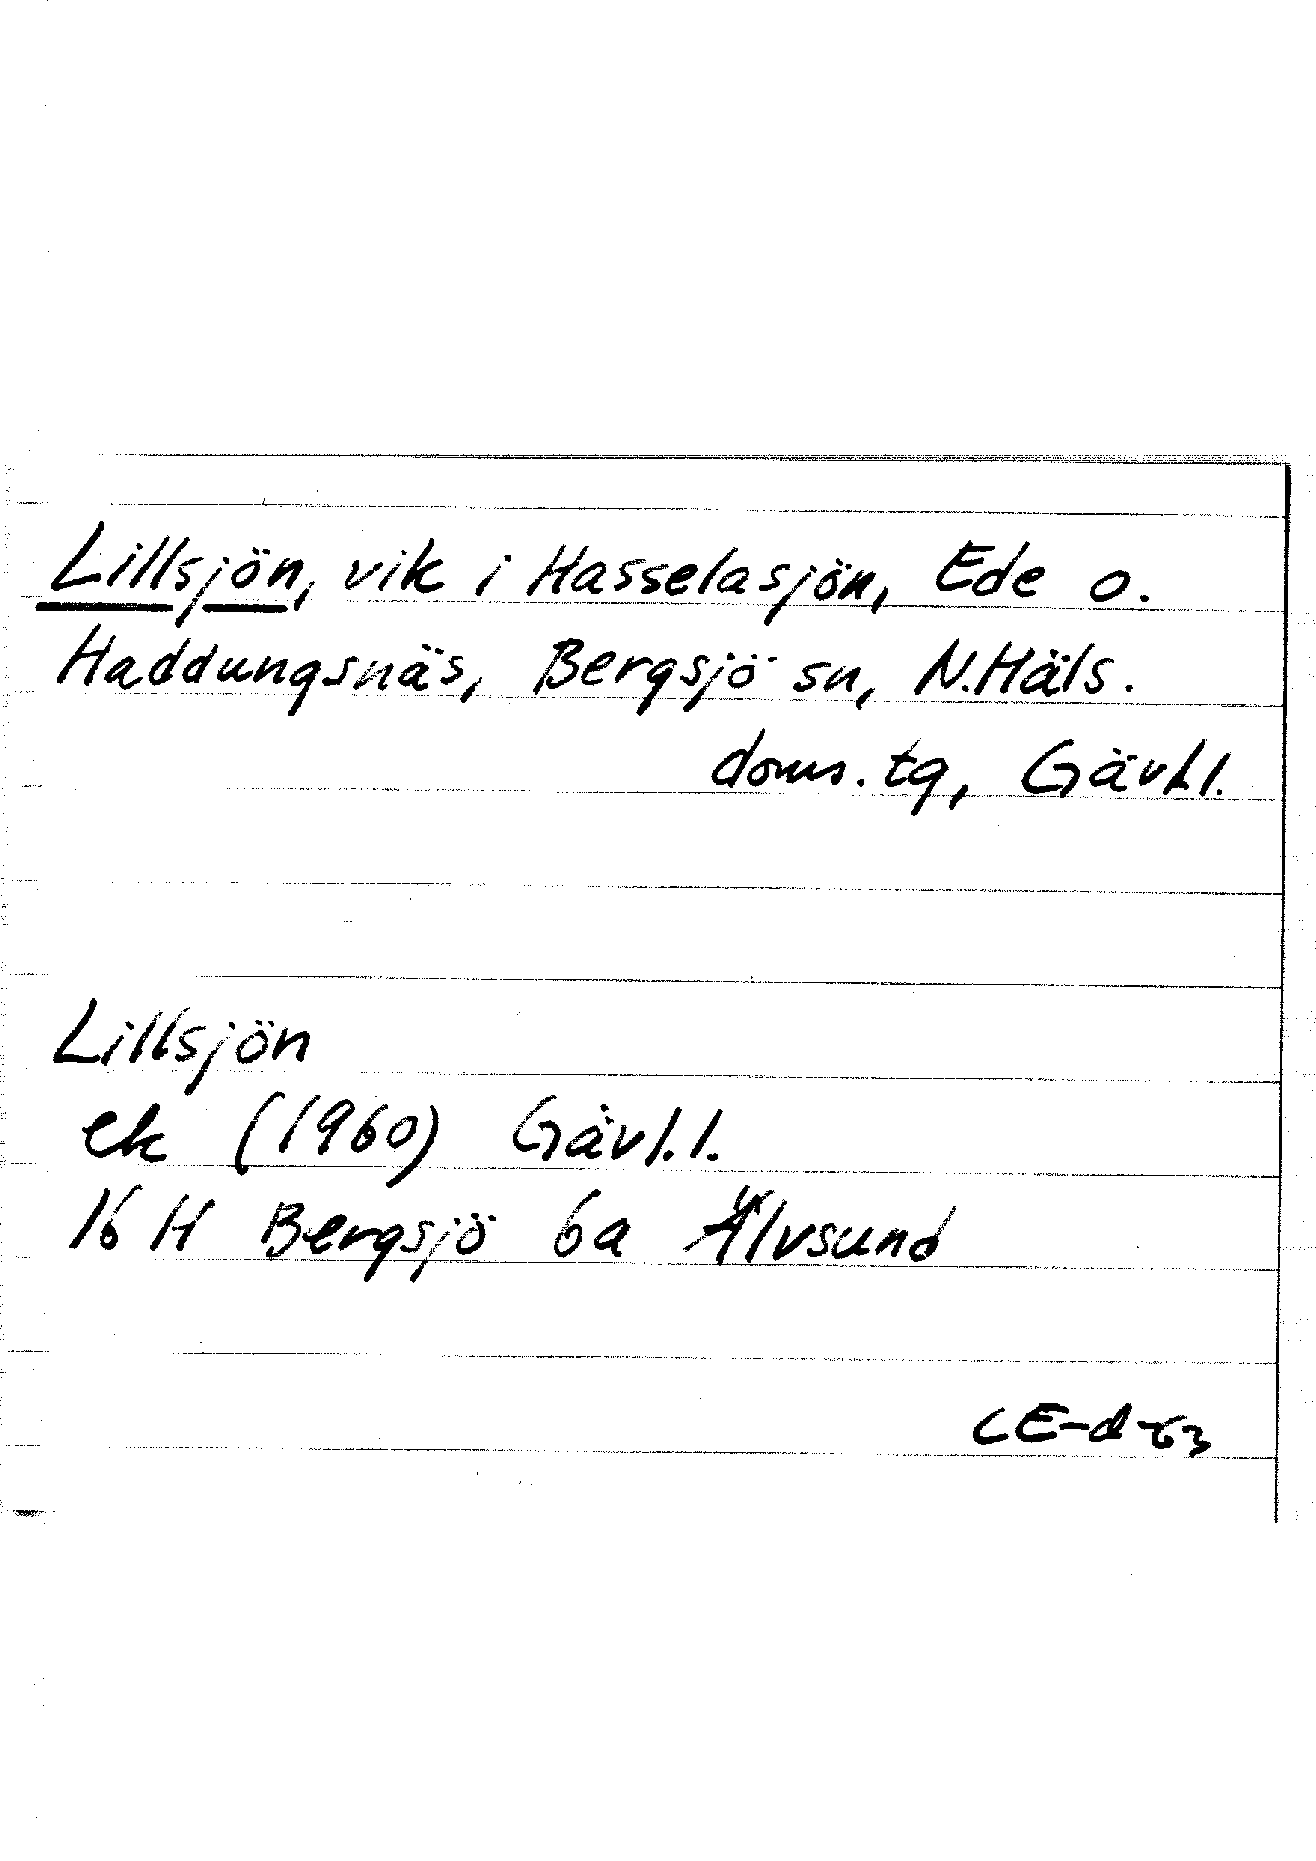 Lillsjön, vik i Hasselasjön, Ede o.
Haddungsnäs, Bergsjö sn, N.Häls.
doms. tg, Gävl.l.
Lillsjön
ek (1960) Gävl.l.
16 H Bergsjö 6a Älvsund
CE-d-63